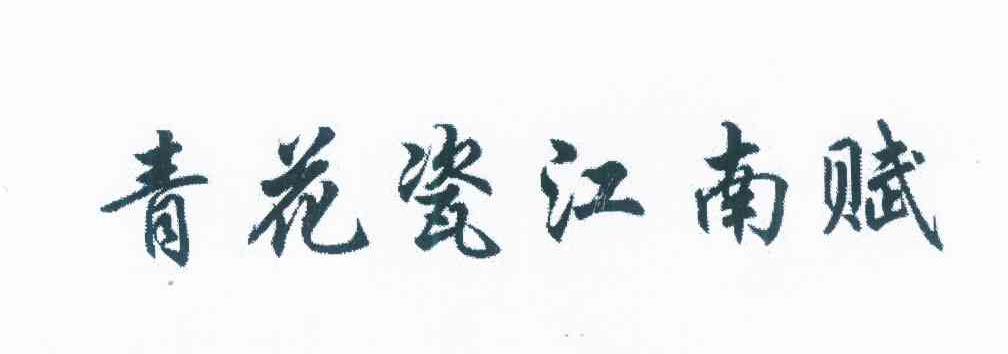 青花瓷江南赋